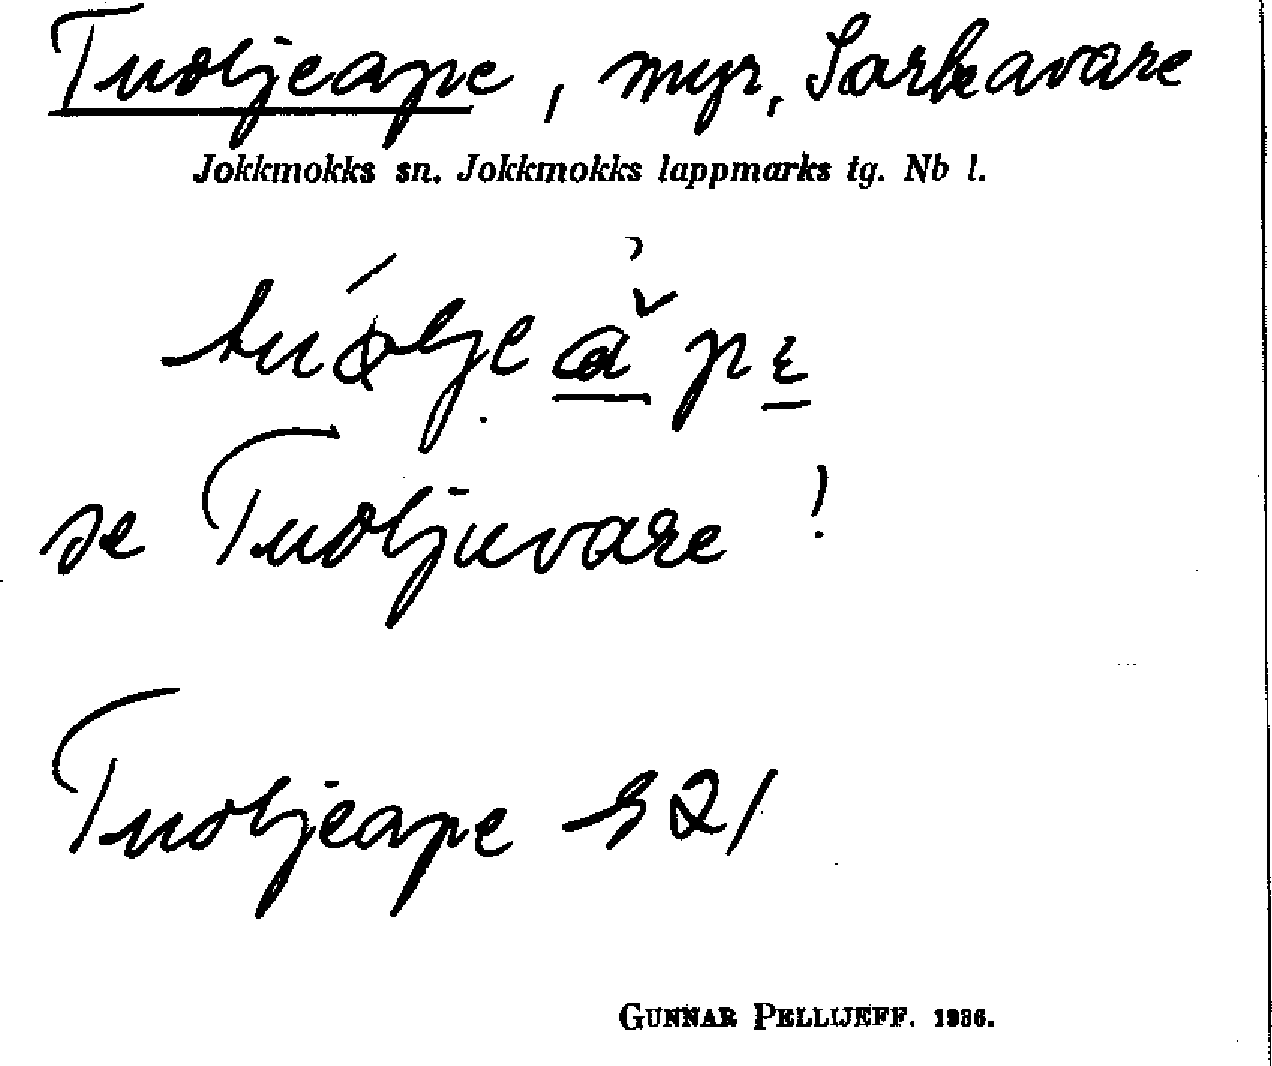 Tuoljeape, myr, Sarkavare
Jokkmokks sn. Jokkmokks lappmarks tg. Nb l.
se Tuoljuvare!
Tuoljeape S 21
GUNNAR PELLIJEFF. 1936.